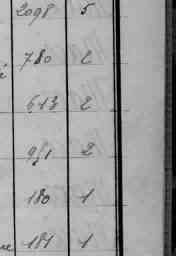 2098 5
780 2
613 2
951 2
180 1
181 1